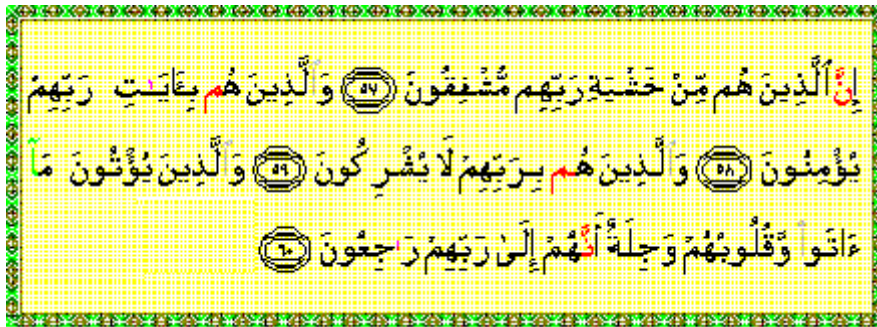 إِنَّ ٱلَّذِينَ هُم مِّنْ خَشْيَةِ رَبِّهِم مُّشْفِقُونَ ۝٥٧ وَٱلَّذِينَ هُم بِـَٔايَـٰتِ رَبِّهِمْ
يُؤْمِنُونَ ۝٥٨ وَٱلَّذِينَ هُم بِرَبِّهِمْ لَا يُشْرِكُونَ ۝٥٩ وَٱلَّذِينَ يُؤْتُونَ مَآ
ءَاتَوا۟ وَّقُلُوبُهُمْ وَجِلَةٌ أَنَّهُمْ إِلَىٰ رَبِّهِمْ رَٰجِعُونَ ۝٦٠